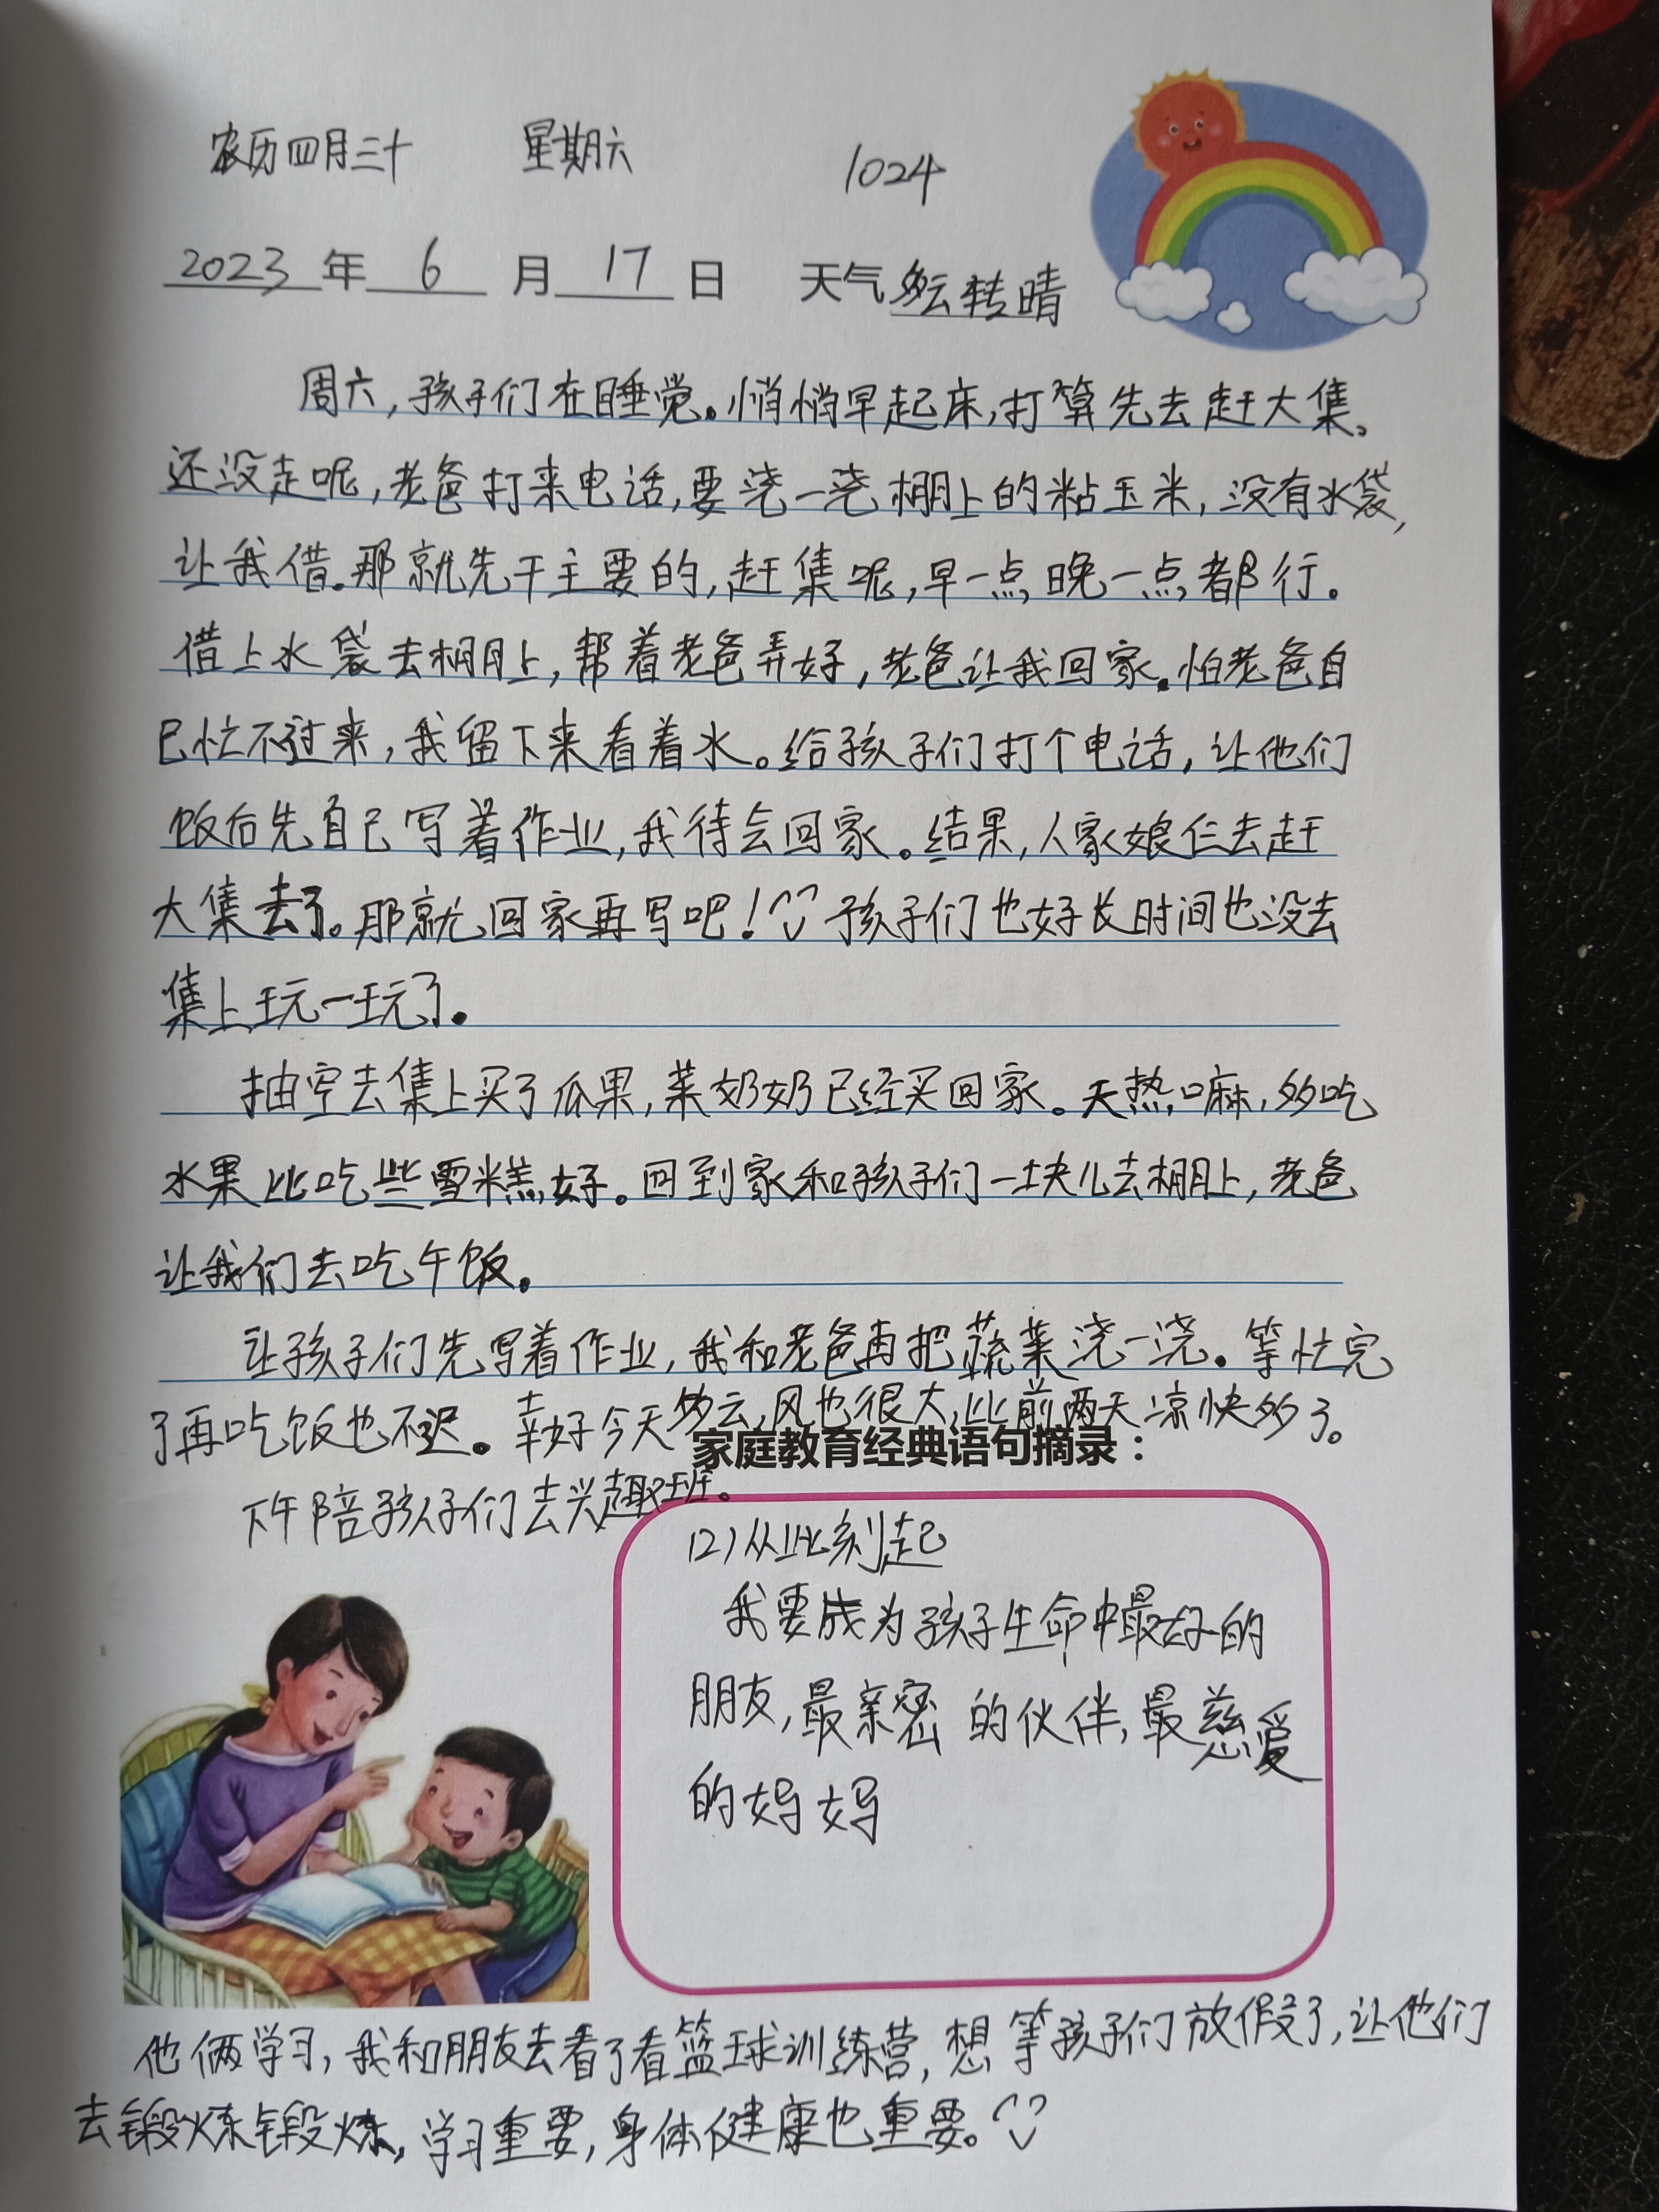 农历四月三十 星期六 1024
2023年 6 月 17 日 天气 多云转晴
周六,孩子们在睡觉。悄悄早起床,打算先去赶大集。
还没走呢,老爸打来电话,要浇一浇棚上的粘玉米,没有水袋,
让我借。那就先干主要的,赶集呢,早一点,晚一点都行。
借上水袋去棚上,帮着老爸弄好,老爸让我回家。怕老爸自
己忙不过来,我留下来看着水。给孩子们打个电话,让他们
饭后先自己写着作业,我待会回家。结果,人家娘仨去赶
大集去了。那就回家再写吧!孩子们也好长时间也没去
集上玩一玩了。
抽空去集上买了瓜果,菜奶奶已经买回家。天热嘛,多吃
水果比吃些雪糕好。回到家和孩子们一块儿去棚上,老爸
让我们去吃午饭。
让孩子们先写着作业,我和老爸再把蔬菜浇一浇。等忙完
了再吃饭也不迟。幸好今天多云,风也很大,比前两天凉快多了。
家庭教育经典语句摘录:
下午陪孩子们去兴趣班。
(2)从此刻起
我要成为孩子生命中最好的
朋友,最亲密的伙伴,最慈爱
的妈妈
他俩学习,我和朋友去看了看篮球训练营,想等孩子们放假了,让他们
去锻炼锻炼,学习重要,身体健康也重要。